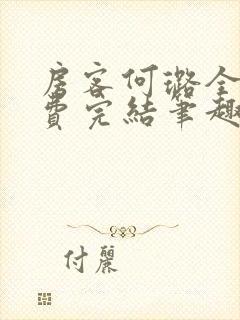 房客何璐全
費完結筆趣
付麗